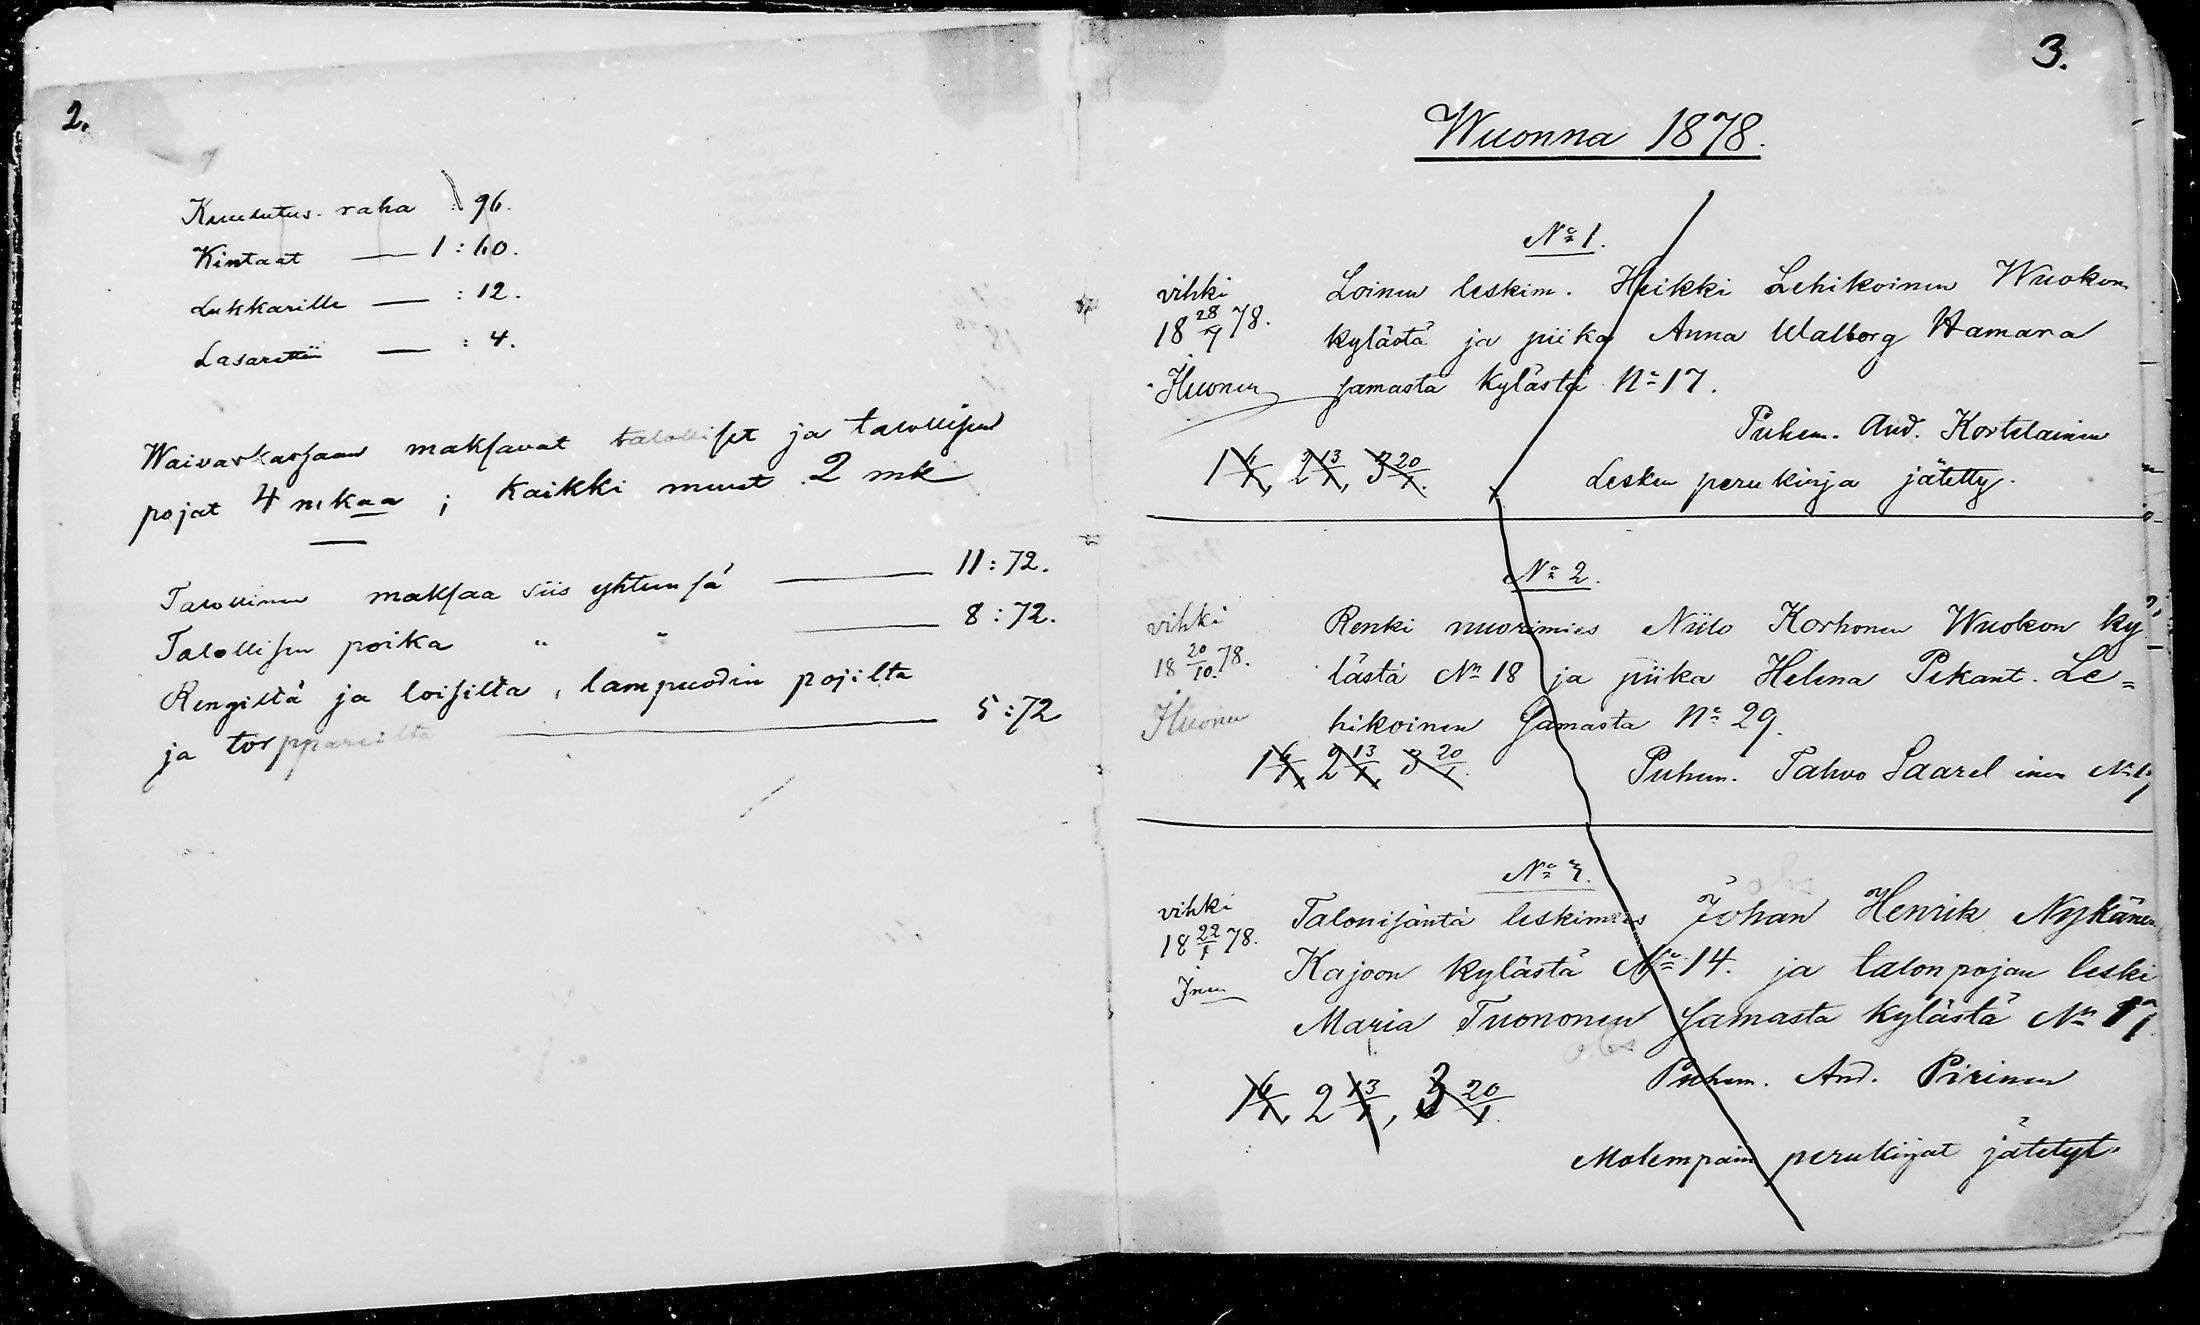 2.
Kuulutus-raha : 96.
Kintaat — 1 : 60.
Lukkarille — : 12.
Lasarettiin — : 4.
Waivaskassaan maksavat talolliset ja talollisen
pojat 4 mkaa ; kaikki muut 2 mk
Talollinen maksaa siis yhteensä — 11 : 72.
Talollisen poika " " — 8 : 72.
Rengiltä ja loisilta, lampuodin pojilta
ja torppareilta — 5 : 72
3.
Wuonna 1878.
No 1.
vihki
18 28/4 78.
Loinen leskim. Heikki Lehikoinen Wuokon
kylästä ja piika Anna Walborg Hamara
samasta kylästä No 17.
Puhem. And. Kortelainen
1 6/1, 2 13/1, 3 20/1.
Lesken perukirja jätetty.
No 2.
vihki
18 20/10 78.
Renki nuorimies Niilo Korhonen Wuokon ky
lästä No 18 ja piika Helena Pekant. Le=
hikoinen samasta No 29.
1 6/1, 2 13/1, 3 20/1.
Puhem. Tahvo Saarelainen
No 3.
vihki
18 22/1 78.
Talonisäntä leskimies Johan Henrik Nykänen
Kajoon kylästä No 14. ja talonpojan leski
Maria Tuononen samasta kylästä No
Puhem. And. Piirinen
1 6/1, 2 13/1, 3 20/1.
Molempain perukirjat jätetyt.